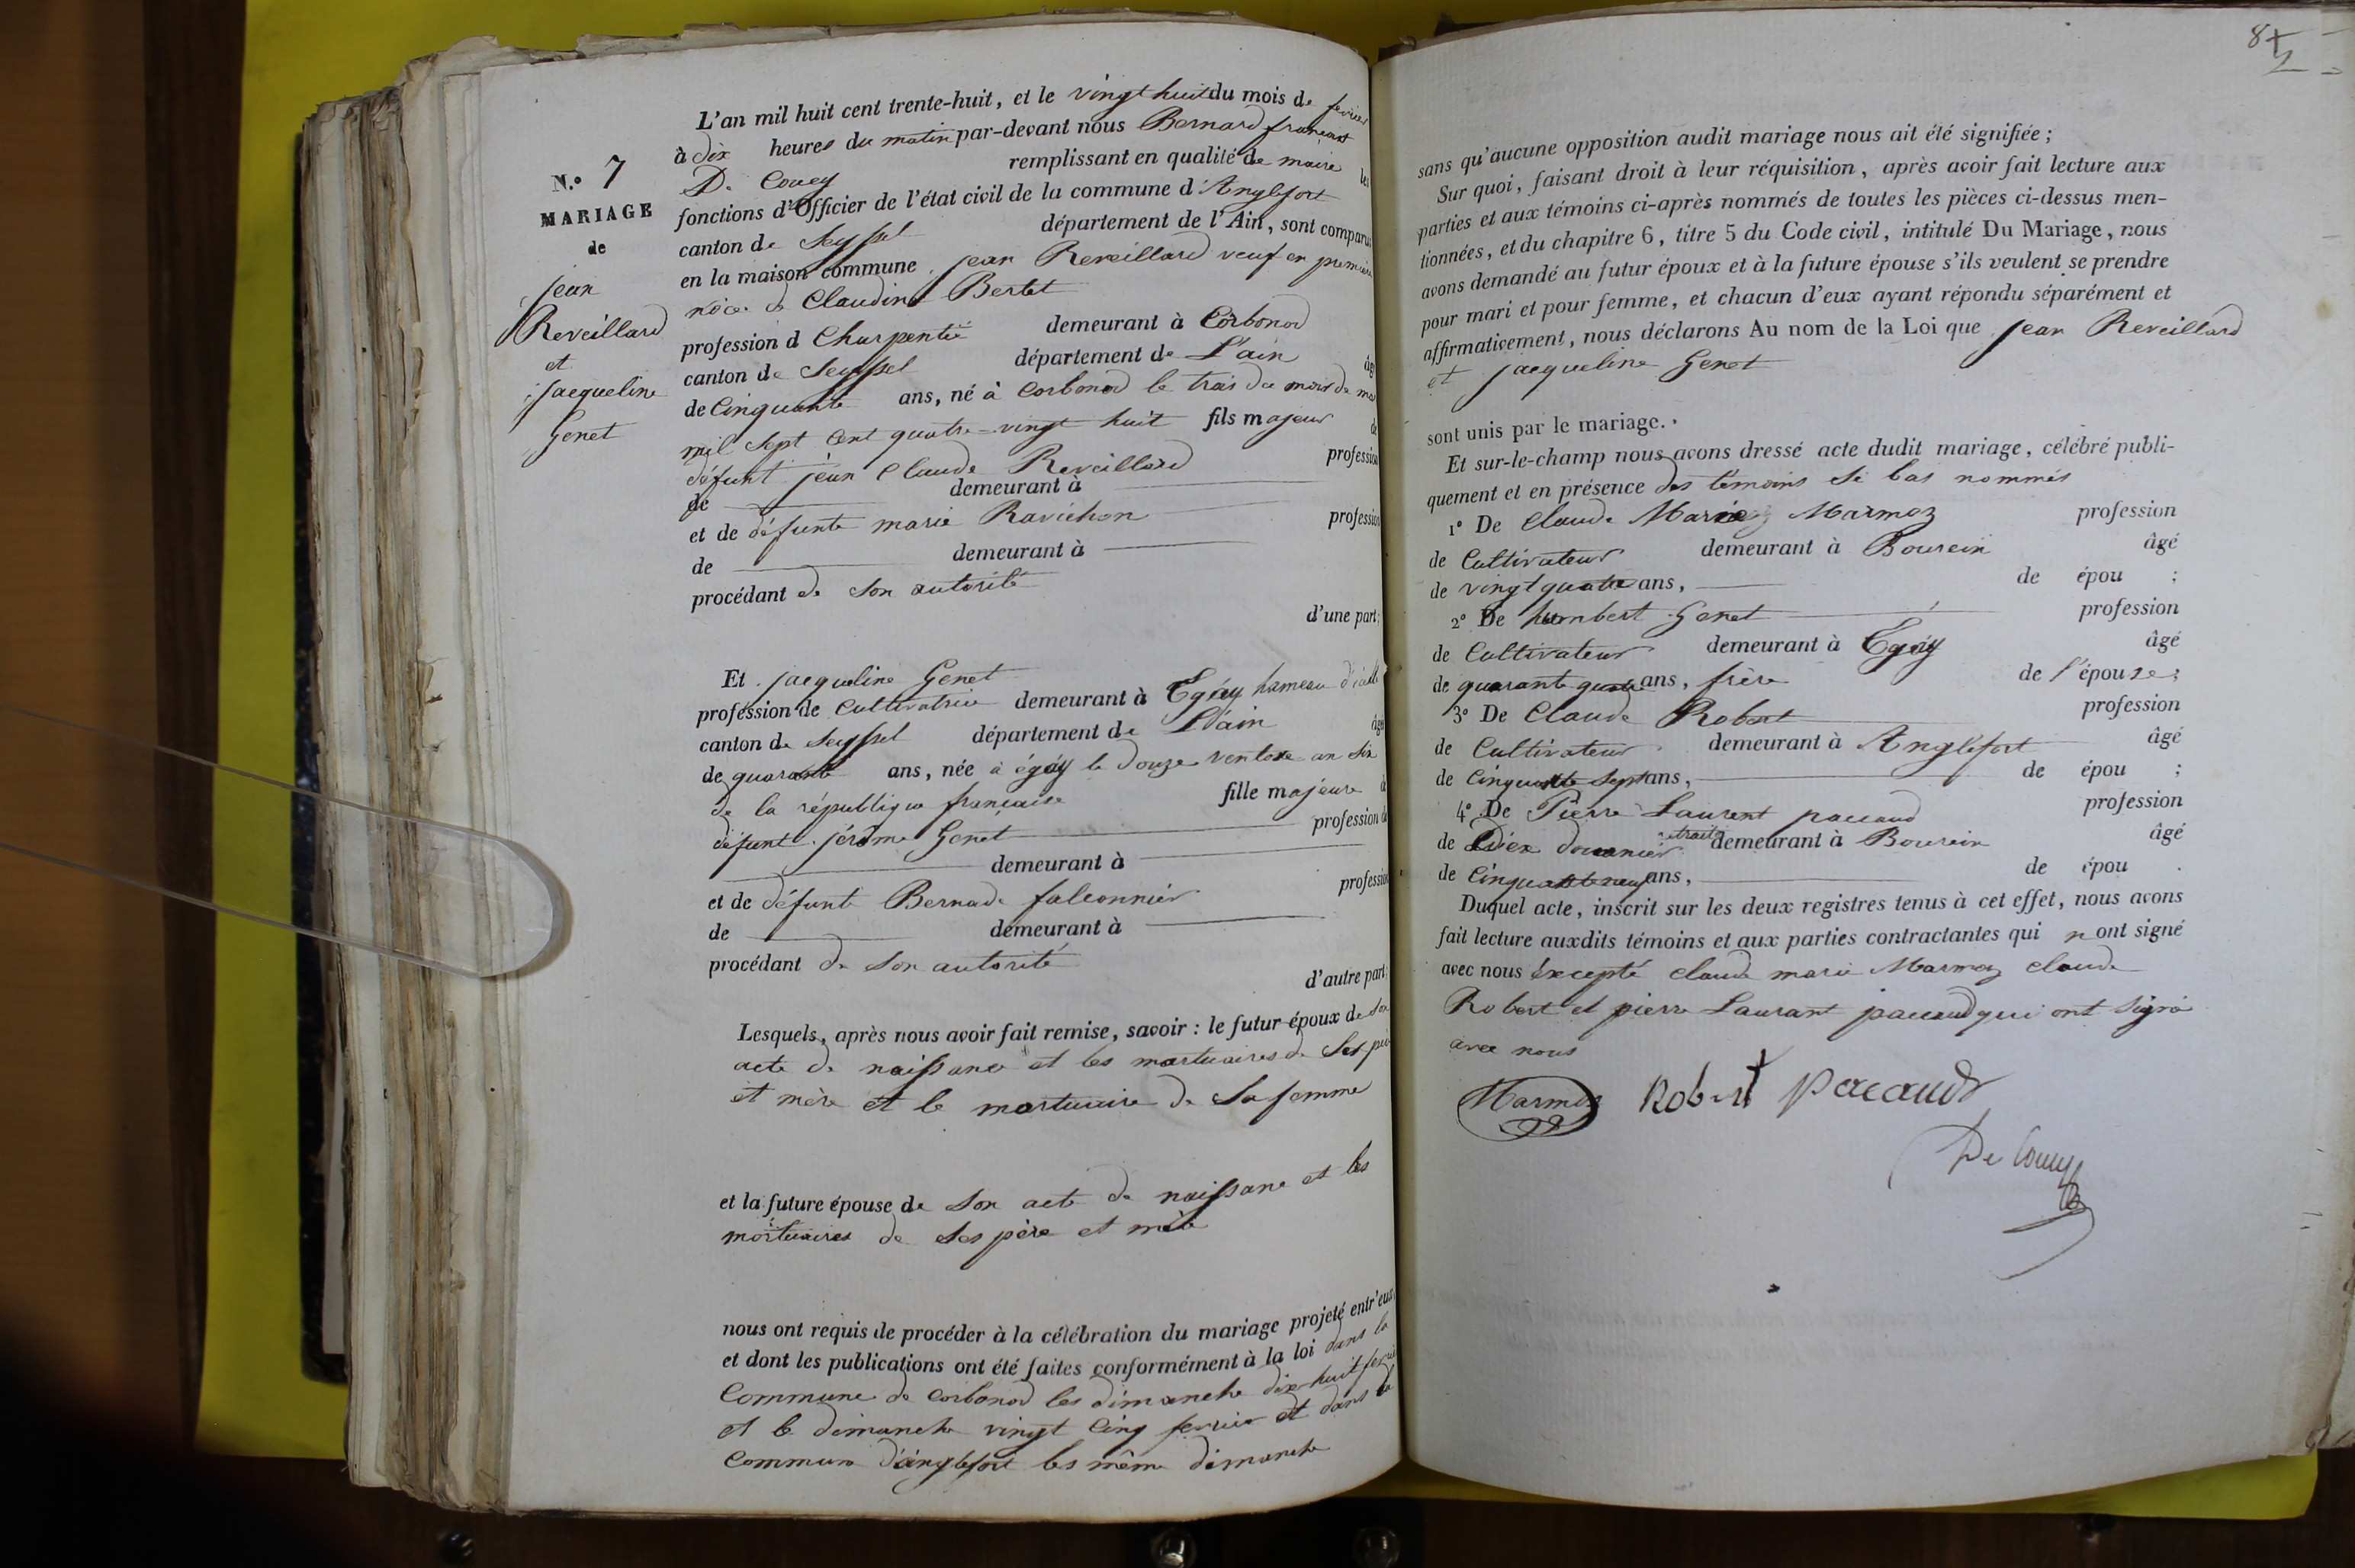 N.o 7
MARIAGE
de
jean
Reveillard
et
jacqueline
Genet
L'an mil huit cent trente-huit, et le vingt huit du mois de fevrier
à dix heures du matin par-devant nous Bernard francois
De Coucy remplissant en qualité de maire les
fonctions d'Officier de l'état civil de la commune d'Anglefort
canton de Seyssel département de l'Ain, sont comparus
en la maison commune jean Reveillard veuf en premiere
noce de Claudine Bertet
profession d Charpentié demeurant à Corbonod
canton de Seyssel département de L'ain âgé
de Cinquante ans, né à Corbonod le trois du mois de
mil sept cent quatre-vingt huit fils majeur de
défunt jean Claude Reveillard profession
de demeurant à
et de défunte marie Ravichon profession
de demeurant à
procédant de son autorité
d'une part;
Et jacqueline Genet
profession de Cultivatrice demeurant à Egéy hameau
canton de Seyssel département de L'ain âgée
de quarante ans, née à égéy le douze ventose an six
de la république française fille majeure de
défunt jérôme Genet profession de
demeurant à
et de défunte Bernade falconnier profession
de demeurant à
procédant de son autorité
d'autre part;
Lesquels, après nous avoir fait remise, savoir: le futur époux de son
acte de naissance et les mortuaires de Ses père
et mère et le mortuaire de Sa femme
et la future épouse de Son acte de naissance et les
mortuaires de Ses père et mère
nous ont requis de procéder à la célébration du mariage projeté entr'eux,
et dont les publications ont été faites conformément à la loi dans la
Commune de Corbonod les dimanche dix-huit fevrier
et le dimanche vingt Cinq fevrier et dans la
Commune d'anglefort les même dimanche
sans qu'aucune opposition audit mariage nous ait été signifiée;
Sur quoi, faisant droit à leur réquisition, après avoir fait lecture aux
parties et aux témoins ci-après nommés de toutes les pièces ci-dessus men-
tionnées, et du chapitre 6, titre 5 du Code civil, intitulé Du Mariage, nous
avons demandé au futur époux et à la future épouse s'ils veulent se prendre
pour mari et pour femme, et chacun d'eux ayant répondu séparément et
affirmativement, nous déclarons Au nom de la Loi que jean Reveillard
et jacqueline Genet
sont unis par le mariage.
Et sur-le-champ nous avons dressé acte dudit mariage, célébré publi-
quement et en présence des témoins Si bas nommés
1° De Claude Marmoz profession
de Cultivateur demeurant à Bourcin âgé
de vingt quatre ans, de épou ;
2° De humbert Genet profession
de Cultivateur demeurant à Egéy âgé
de quarante quatre ans, frère de l'épouze;
3° De Claude Robert profession
de Cultivateur demeurant à Anglefort âgé
de Cinquante Sept ans, de épou ;
4° De Pierre Laurent paccaud profession
de douanier retraité demeurant à Bourcin âgé
de Cinquante neuf ans, de épou .
Duquel acte, inscrit sur les deux registres tenus à cet effet, nous avons
fait lecture auxdits témoins et aux parties contractantes qui n ont signé
avec nous excepté claude marie Marmoz claude
Robert et pierre Laurant paccaud qui ont signé
avec nous
Marmoz Robert paccaud
De Coucy